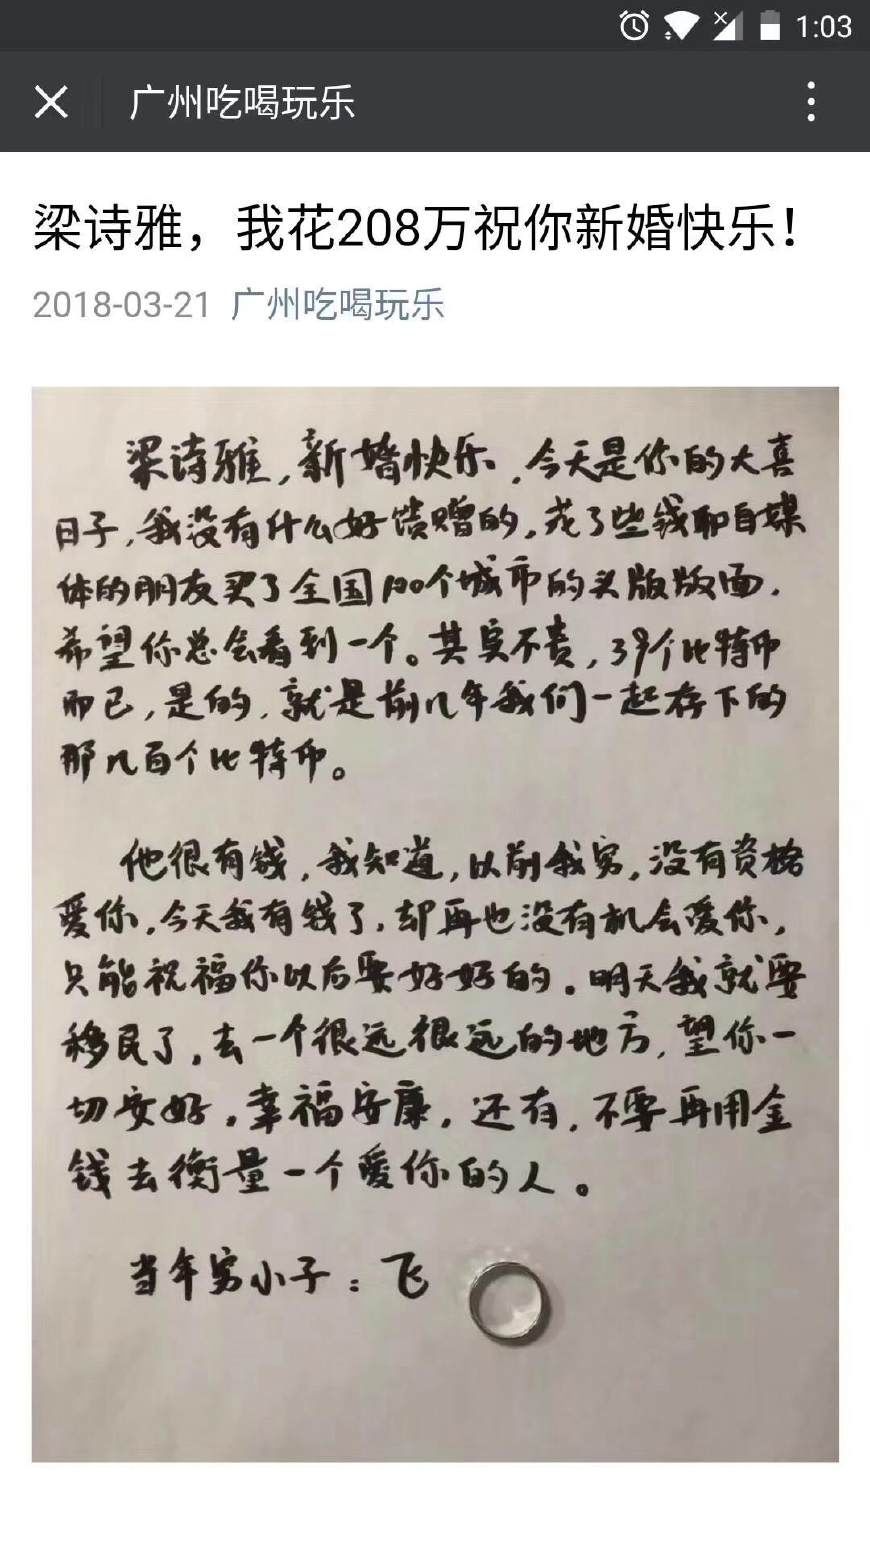 1:03
广州吃喝玩乐
梁诗雅，我花208万祝你新婚快乐！
2018-03-21 广州吃喝玩乐
梁诗雅，新婚快乐，今天是你的大喜
日子，我没有什么好馈赠的，花了些钱和自媒
体的朋友买了全国100个城市的头版版面，
希望你总会看到一个。其实不贵，39个比特币
而已，是的，就是前几年我们一起存下的
那几百个比特币。
他很有钱，我知道，以前我穷，没有资格
爱你，今天我有钱了，却再也没有机会爱你，
只能祝福你以后要好好的。明天我就要
移民了，去一个很远很远的地方，望你一
切安好，幸福安康，还有，不要再用金
钱去衡量一个爱你的人。
当年穷小子：飞